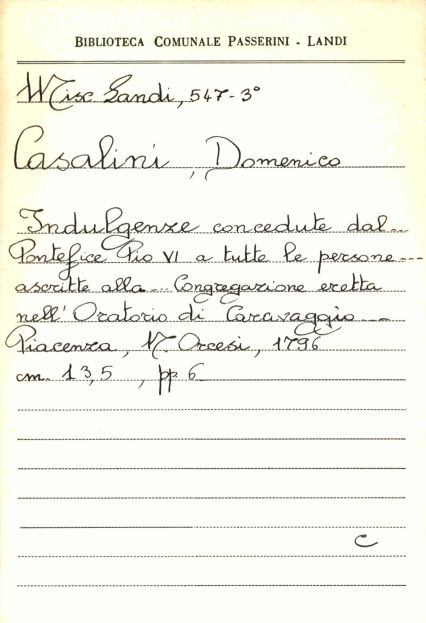 BIBLIOTECA COMUNALE PASSERINI - LANDI
Misc. Landi, 547-3°
Casalini, Domenico
Indulgenze concedute dal...
Pontefice Pio VI a tutte le persone...
ascritte alla... Congregazione eretta
nell'Oratorio di Caravaggio...
Piacenza, N. Orcesi, 1796
cm. 13,5 , pp 6
C